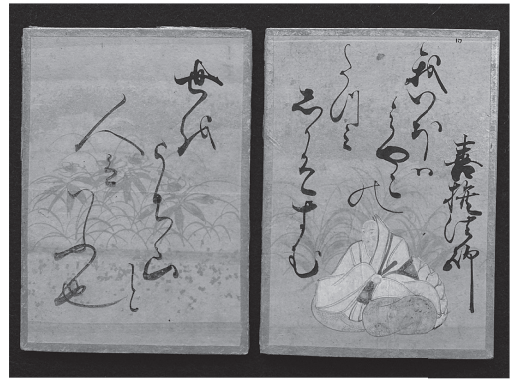 喜撰法師
我いほハ
みやこの
たつミ
しかそすむ
世を
うち山と
人はいふ也